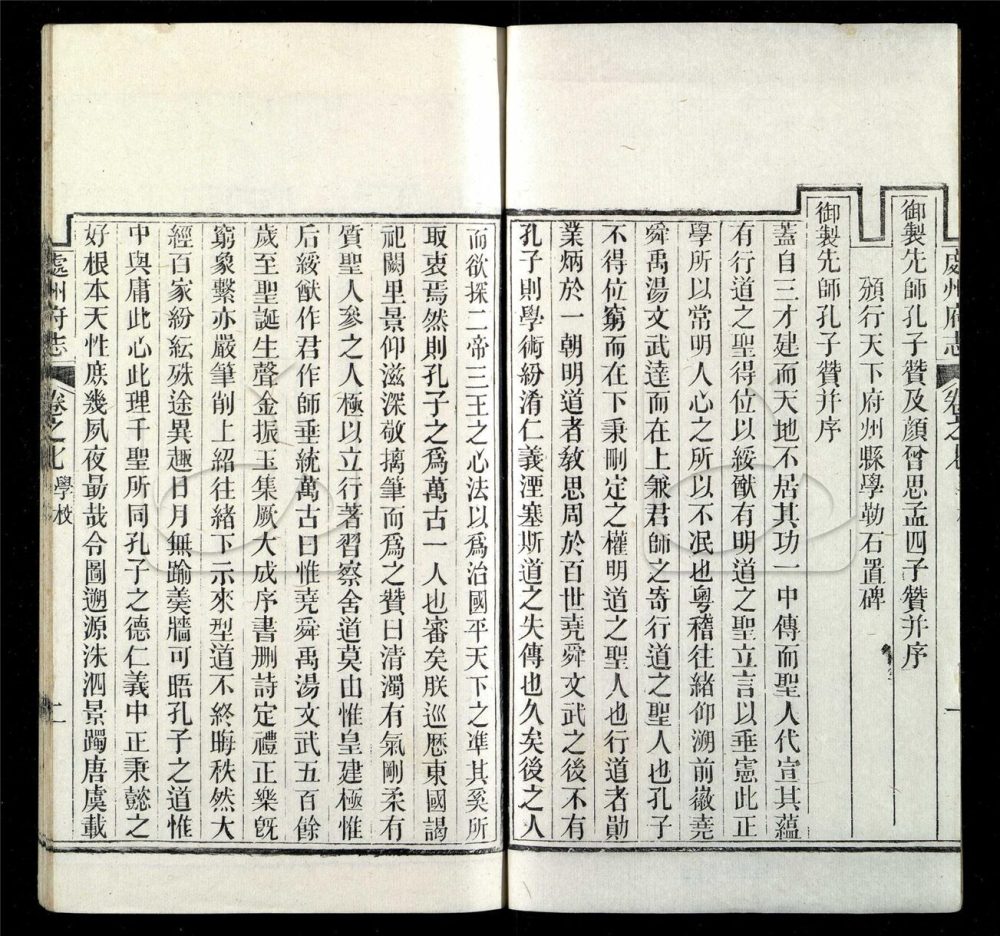 處州府志 卷之
御製先師孔子贊及顏曾思孟四子贊并序
頒行天下府州縣學勒石置碑
御製先師孔子贊并序
蓋自三才建而天地不居其功一中傳而聖人代宣其蘊
有行道之聖得位以綏猷有明道之聖立言以垂憲此正
學所以常明人心之所以不泯也粵稽往緒仰溯前徽堯
舜禹湯文武達而在上兼君師之寄行道之聖人也孔子
不得位窮而在下秉刪定之權明道之聖人也行道者勛
業炳於一朝明道者敎思周於百世堯舜文武之後不有
孔子則學術紛淆仁義湮塞斯道之失傳也久矣後之人
而欲探二帝三王之心法以爲治國平天下之凖其奚所
取衷焉然則孔子之爲萬古一人也審矣朕巡歷東國謁
祀闕里景仰滋深敬摛筆而爲之贊曰清濁有氣剛柔有
質聖人參之人極以立行著習察舍道莫由惟皇建極惟
后綏猷作君作師垂統萬古曰惟堯舜禹湯文武五百餘
歲至聖誕生聲金振玉集厥大成序書刪詩定禮正樂旣
窮象繫亦嚴筆削上紹往緒下示來型道不終晦秩然大
經百家紛紜殊途異趣日月無踰羹牆可晤孔子之道惟
中與庸此心此理千聖所同孔子之德仁義中正秉懿之
好根本天性庶幾夙夜勗哉令圖溯源洙泗景躅唐虞載
處州府志 卷之七 學校 二